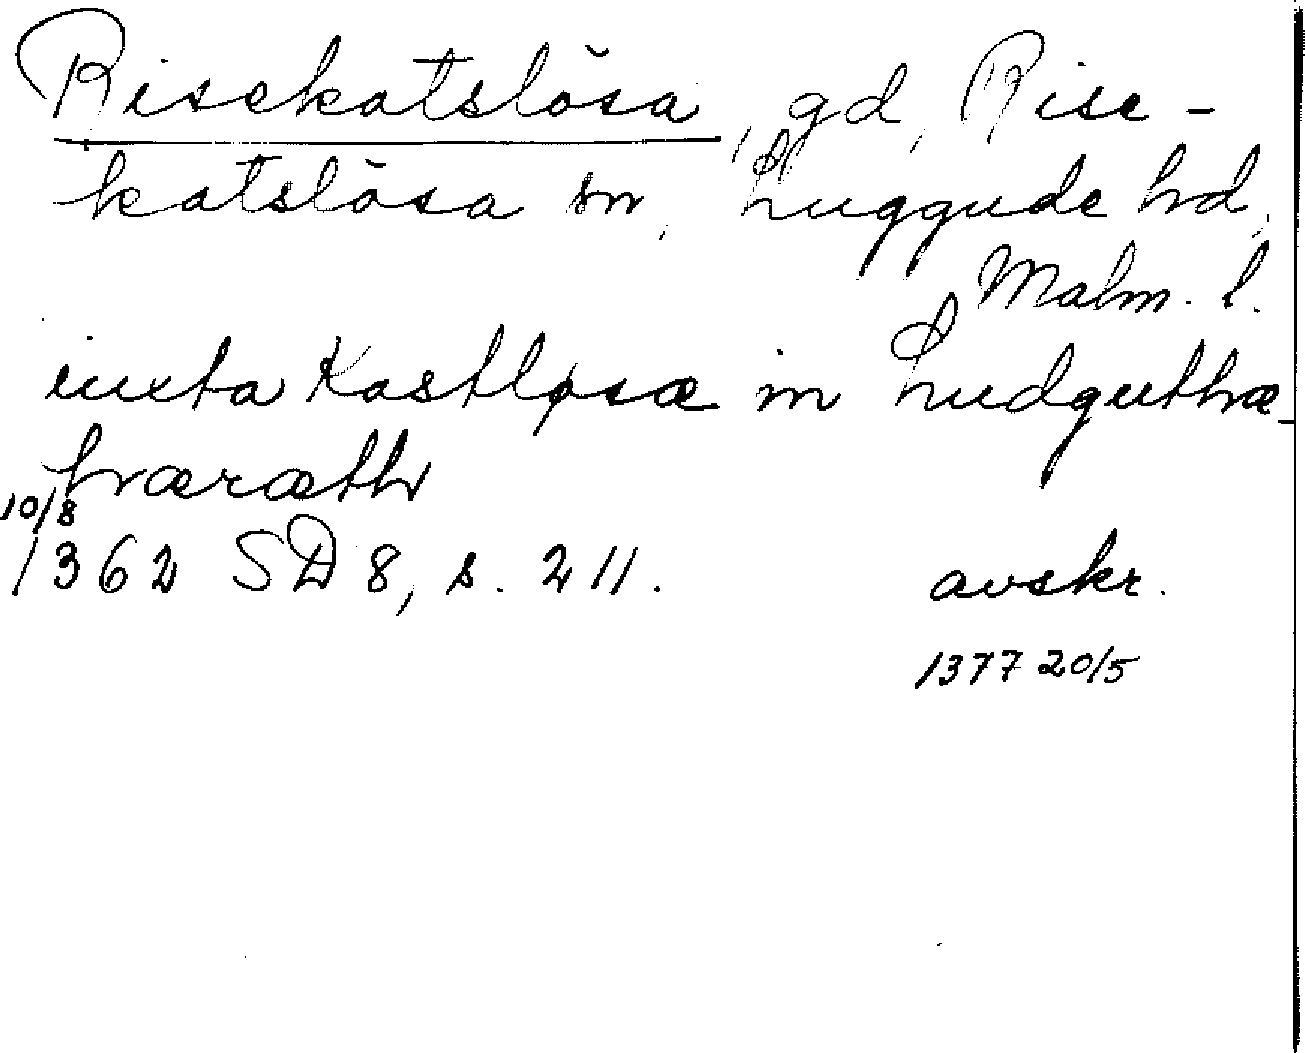 Risekatslösa, gd, Rise-
katslösa sn, Luggude hd,
Malm. l.
iuxta Kastløsæ in Ludguthæ-
hræræth
10/8
1362 SD 8, s. 211. avskr.
1377 20/5